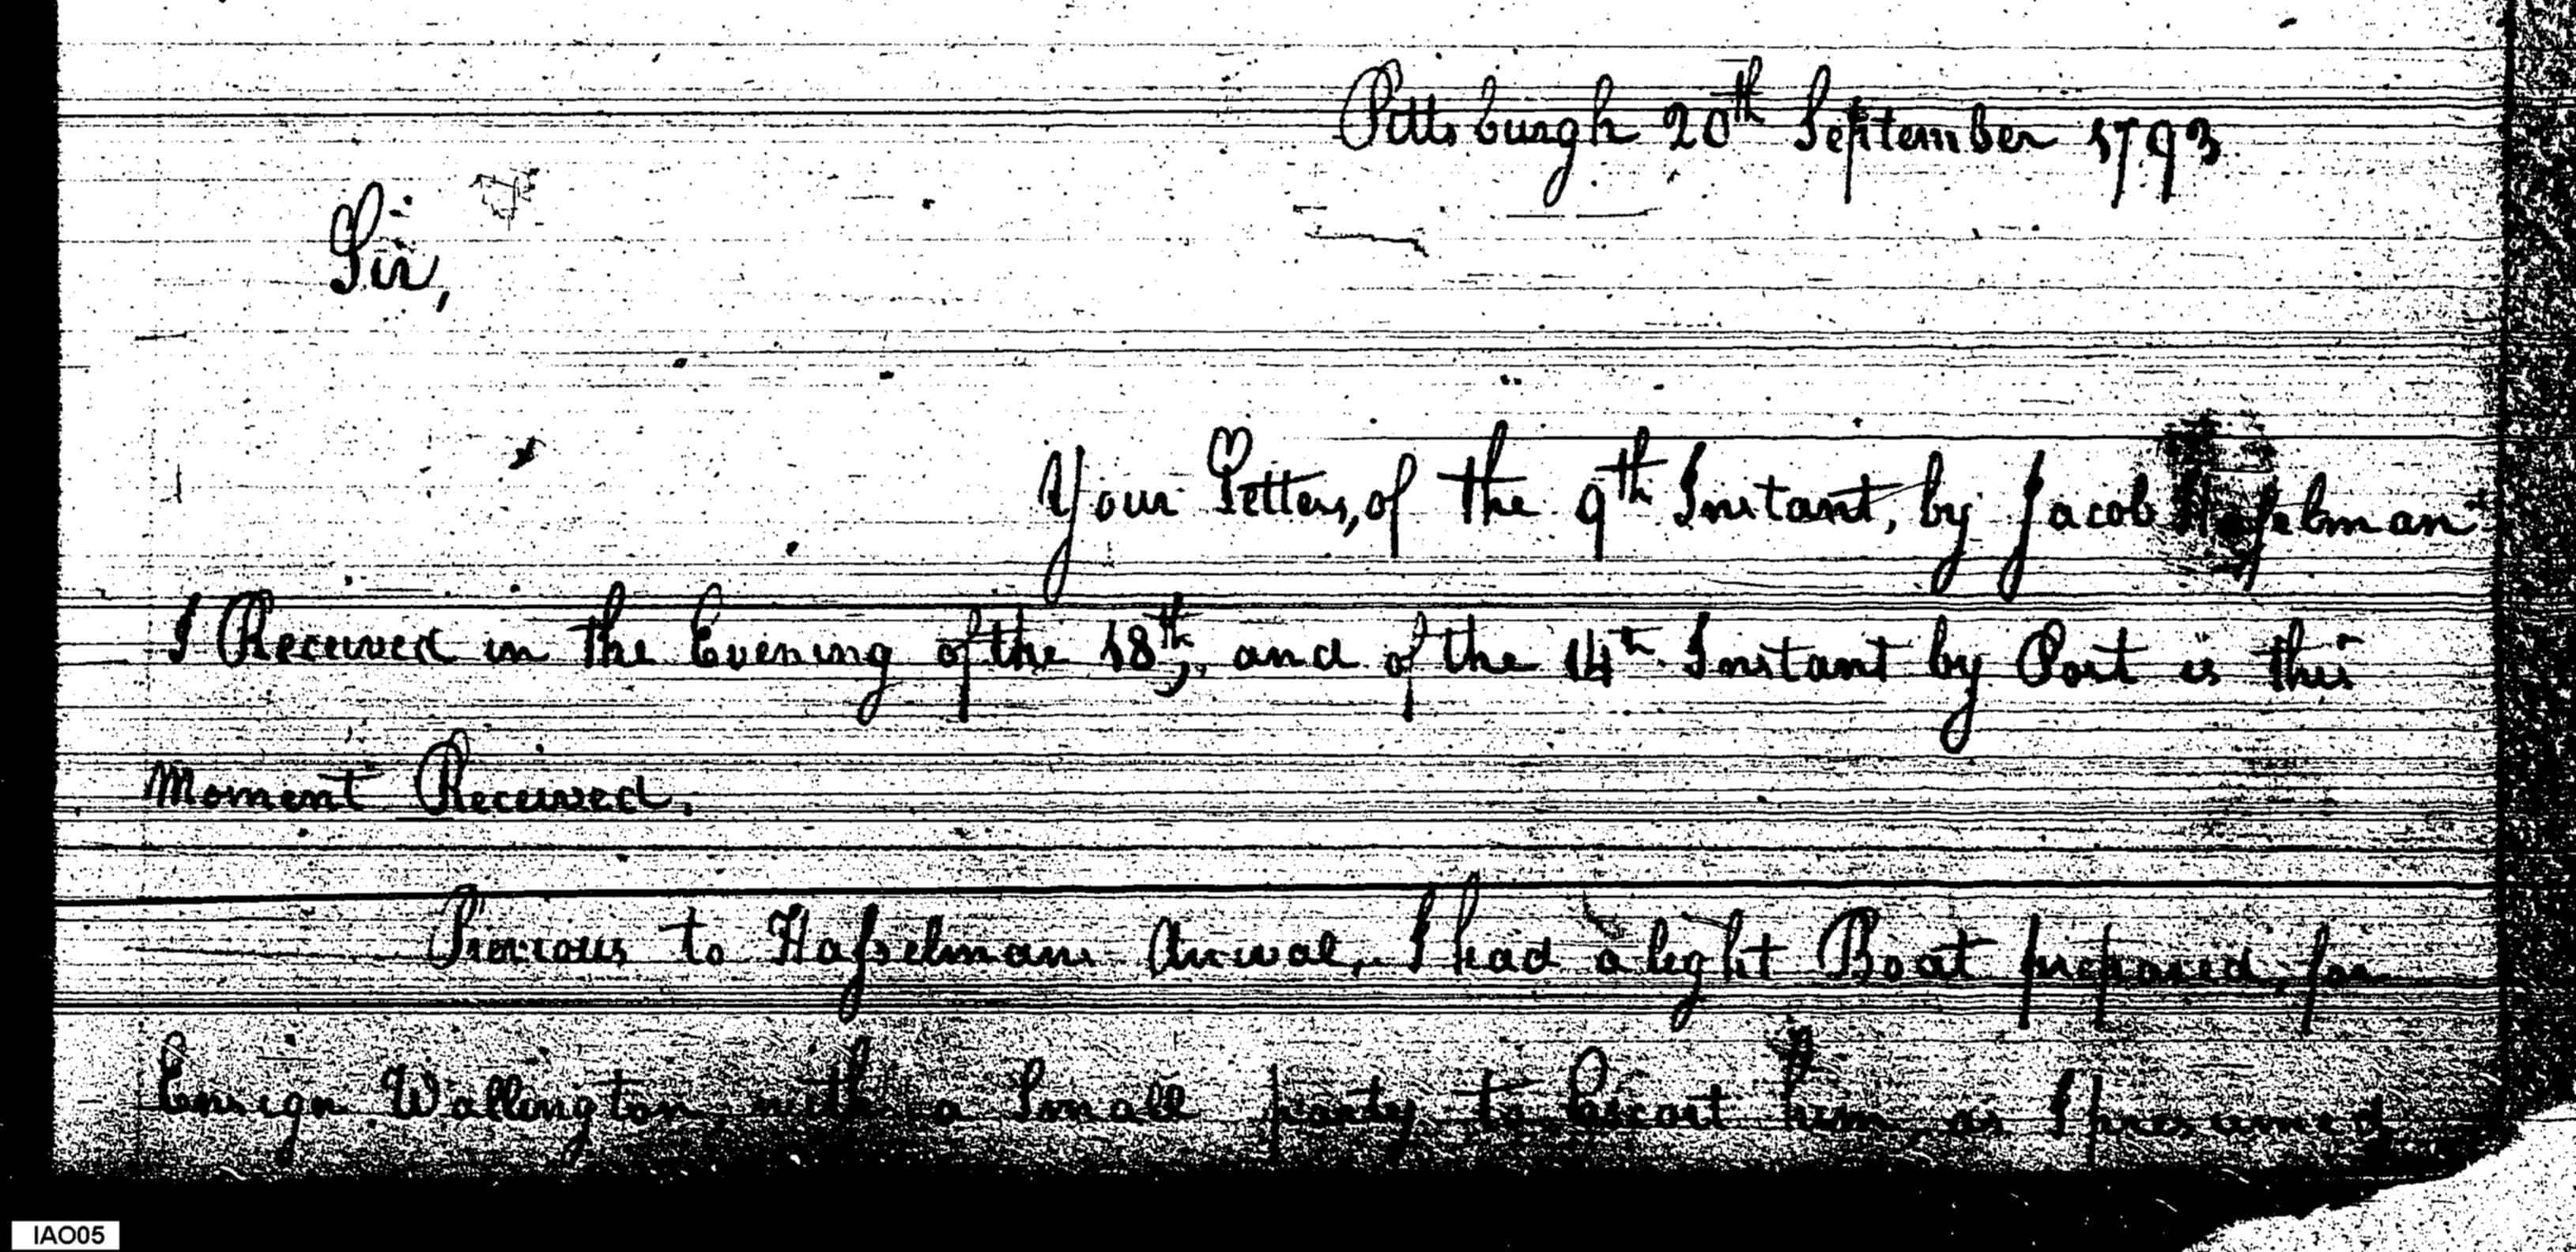 Pittsburgh 20th September 1793
Sir,
Your Letters, of the 9th Instant, by Jacob Hasselman
I Received in the Evening of the 18th, and of the 14th Instant by Post is this
Moment Received.
Previous to Hasselmans Arrival, I had a light Boat prepared, for
Ensign Wallington with a Small party to Escort him, as I presumed
IAO05